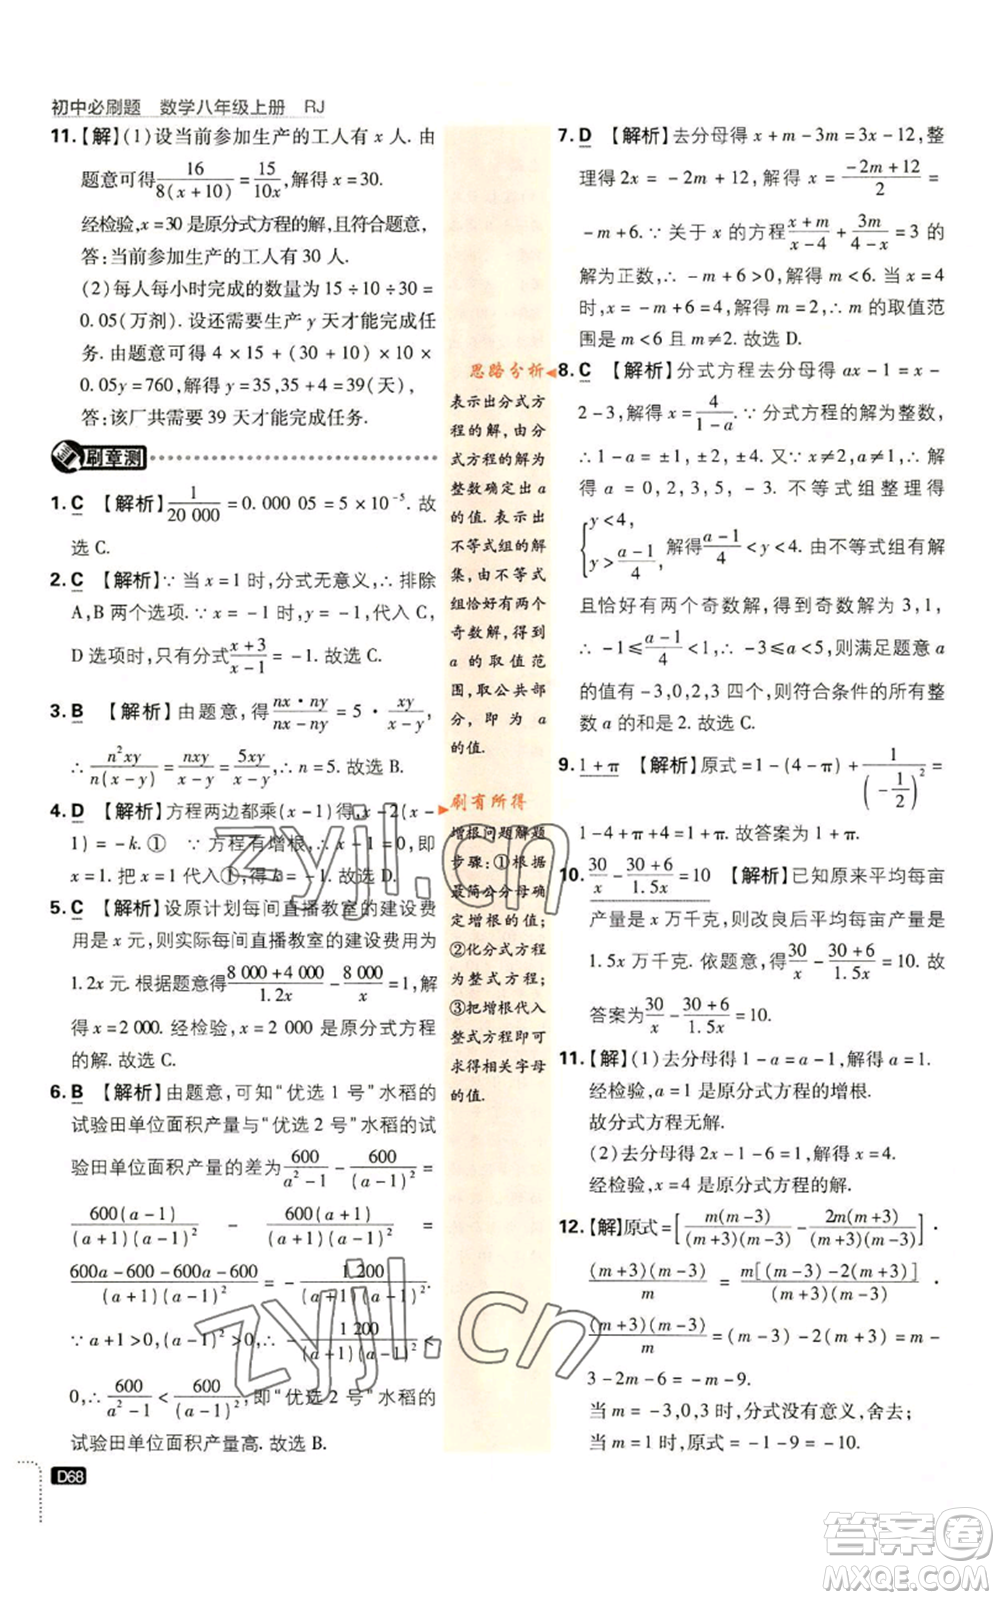 初中必刷题 数学八年级上册 RJ
11.【解】(1)设当前参加生产的工人有 x 人. 由
题意可得 16/(8(x+10)) = 15/(10x), 解得 x = 30.
经检验, x = 30 是原分式方程的解,且符合题意.
答:当前参加生产的工人有 30 人.
(2)每人每小时完成的数量为 15÷10÷30 =
0.05(万剂). 设还需要生产 y 天才能完成任
务. 由题意可得 4×15 + (30+10)×10×
0.05y = 760,解得 y = 35,35 + 4 = 39(天).
答:该厂共需要 39 天才能完成任务.
刷章测
1. C 【解析】1/20 000 = 0.000 05 = 5×10⁻⁵. 故
选 C.
2. C 【解析】∵ 当 x = 1 时,分式无意义,∴ 排除
A,B 两个选项. ∵ x = -1 时,y = -1,代入 C,
D 选项时,只有分式 (x+3)/(x-1) = -1. 故选 C.
3. B 【解析】由题意,得 (nx·ny)/(nx-ny) = 5·xy/(x-y),
∴ n²xy/(n(x-y)) = nxy/(x-y) = 5xy/(x-y), ∴ n = 5. 故选 B.
4. D 【解析】方程两边都乘(x-1)得,x-2(x-
1) = -k. ① ∵ 方程有增根,∴ x-1=0,∴
x = 1. 把 x = 1 代入①,得 k = -1. 故选 D.
5. C 【解析】设原计划每间直播教室的建设费
用为 x 元,则实际每间直播教室的建设费用为
1.2x 元. 根据题意得 (8 000+4 000)/1.2x - 8 000/x = 1,
解得 x = 2 000. 经检验,x = 2 000 是原分式方程
的解. 故选 C.
6. B 【解析】由题意,可知“优选 1 号”水稻的
试验田单位面积产量与“优选 2 号”水稻的试
验田单位面积产量的差为 600/(a²-1) - 600/(a-1)² =
600(a-1)/((a+1)(a-1)²) - 600(a+1)/((a+1)(a-1)²) =
(600a-600-600a-600)/((a+1)(a-1)²) = - 1 200/((a+1)(a-1)²).
∵ a+1>0,(a-1)²>0,∴ - 1 200/((a+1)(a-1)²) <
0,∴ 600/(a²-1) < 600/(a-1)²,即“优选 2 号”水稻的
试验田单位面积产量高. 故选 B.
D68
思路分析
表示出分式方
程的解,由分
式方程的解为
整数确定出 a
的值. 表示出
不等式组的解
集,由不等式
组恰好有两个
奇数解,得到
a 的取值范
围,取公共部
分,即为 a
的值.
刷有所得
增根问题解题
步骤:①根据
最简公分母确
定增根的值;
②化分式方程
为整式方程;
③把增根代入
整式方程即可
求得相关字母
的值.
7. D 【解析】去分母得 x+m-3m = 3x-12,整
理得 2x = -2m+12,解得 x = (-2m+12)/2 =
-m+6. ∵ 关于 x 的方程 (x+m)/(x-4) + 3m/(4-x) = 3 的
解为正数,∴ -m+6>0,解得 m<6. 当 x = 4
时,x = -m+6 = 4,解得 m = 2,∴ m 的取值范
围是 m<6 且 m≠2. 故选 D.
8. C 【解析】分式方程去分母得 ax-1 = x-
2-3,解得 x = 4/(1-a). ∵ 分式方程的解为整数,
∴ 1-a = ±1, ±2, ±4. ∵ x≠2, ∴ a≠-1,
∴ a = 0,2,3,5,-3. 不等式组整理得
{y<4, y>(a-1)/4, 解得 (a-1)/4 < y < 4. 由不等式组有解
且恰好有两个奇数解,得到奇数解为 3,1,
∴ -1≤(a-1)/4<1, ∴ -3≤a<5,则满足题意 a
的值有 -3,0,2,3 四个,则符合条件的所有整
数 a 的和是 2. 故选 C.
9. 1+π 【解析】原式 = 1-(4-π)+1/(-1/2)² =
1-4+π+4 = 1+π. 故答案为 1+π.
10. 30/x - (30+6)/1.5x = 10 【解析】已知原来平均每亩
产量是 x 万千克,则改良后平均每亩产量是
1.5x 万千克. 依题意,得 30/x - (30+6)/1.5x = 10. 故
答案为 30/x - (30+6)/1.5x = 10.
11.【解】(1)去分母得 1-a = a-1,解得 a = 1.
经检验,a = 1 是原分式方程的增根.
故分式方程无解.
(2)去分母得 2x-1-6 = 1,解得 x = 4.
经检验,x = 4 是原分式方程的解.
12.【解】原式 = [m(m-3)/((m+3)(m-3)) - 2m(m+3)/((m+3)(m-3))]·
(m+3)(m-3)/m = m[(m-3)-2(m+3)]/((m+3)(m-3)) ·
(m+3)(m-3)/m = (m-3)-2(m+3) = m-
3-2m-6 = -m-9.
当 m = -3,0,3 时,分式没有意义,舍去;
当 m = 1 时,原式 = -1-9 = -10.
zyjl.cn
zyjl.cn
答案圈
MXQE.COM